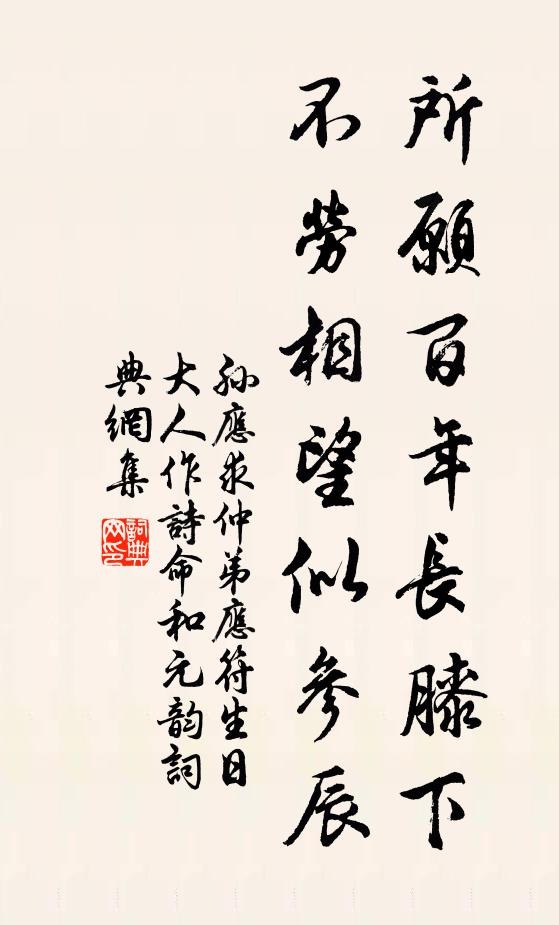 所願百年長膝下
不勞相望似參辰
孫應求仲弟應符生日
大人作詩命和元韵詞
典網集
詞典
网印